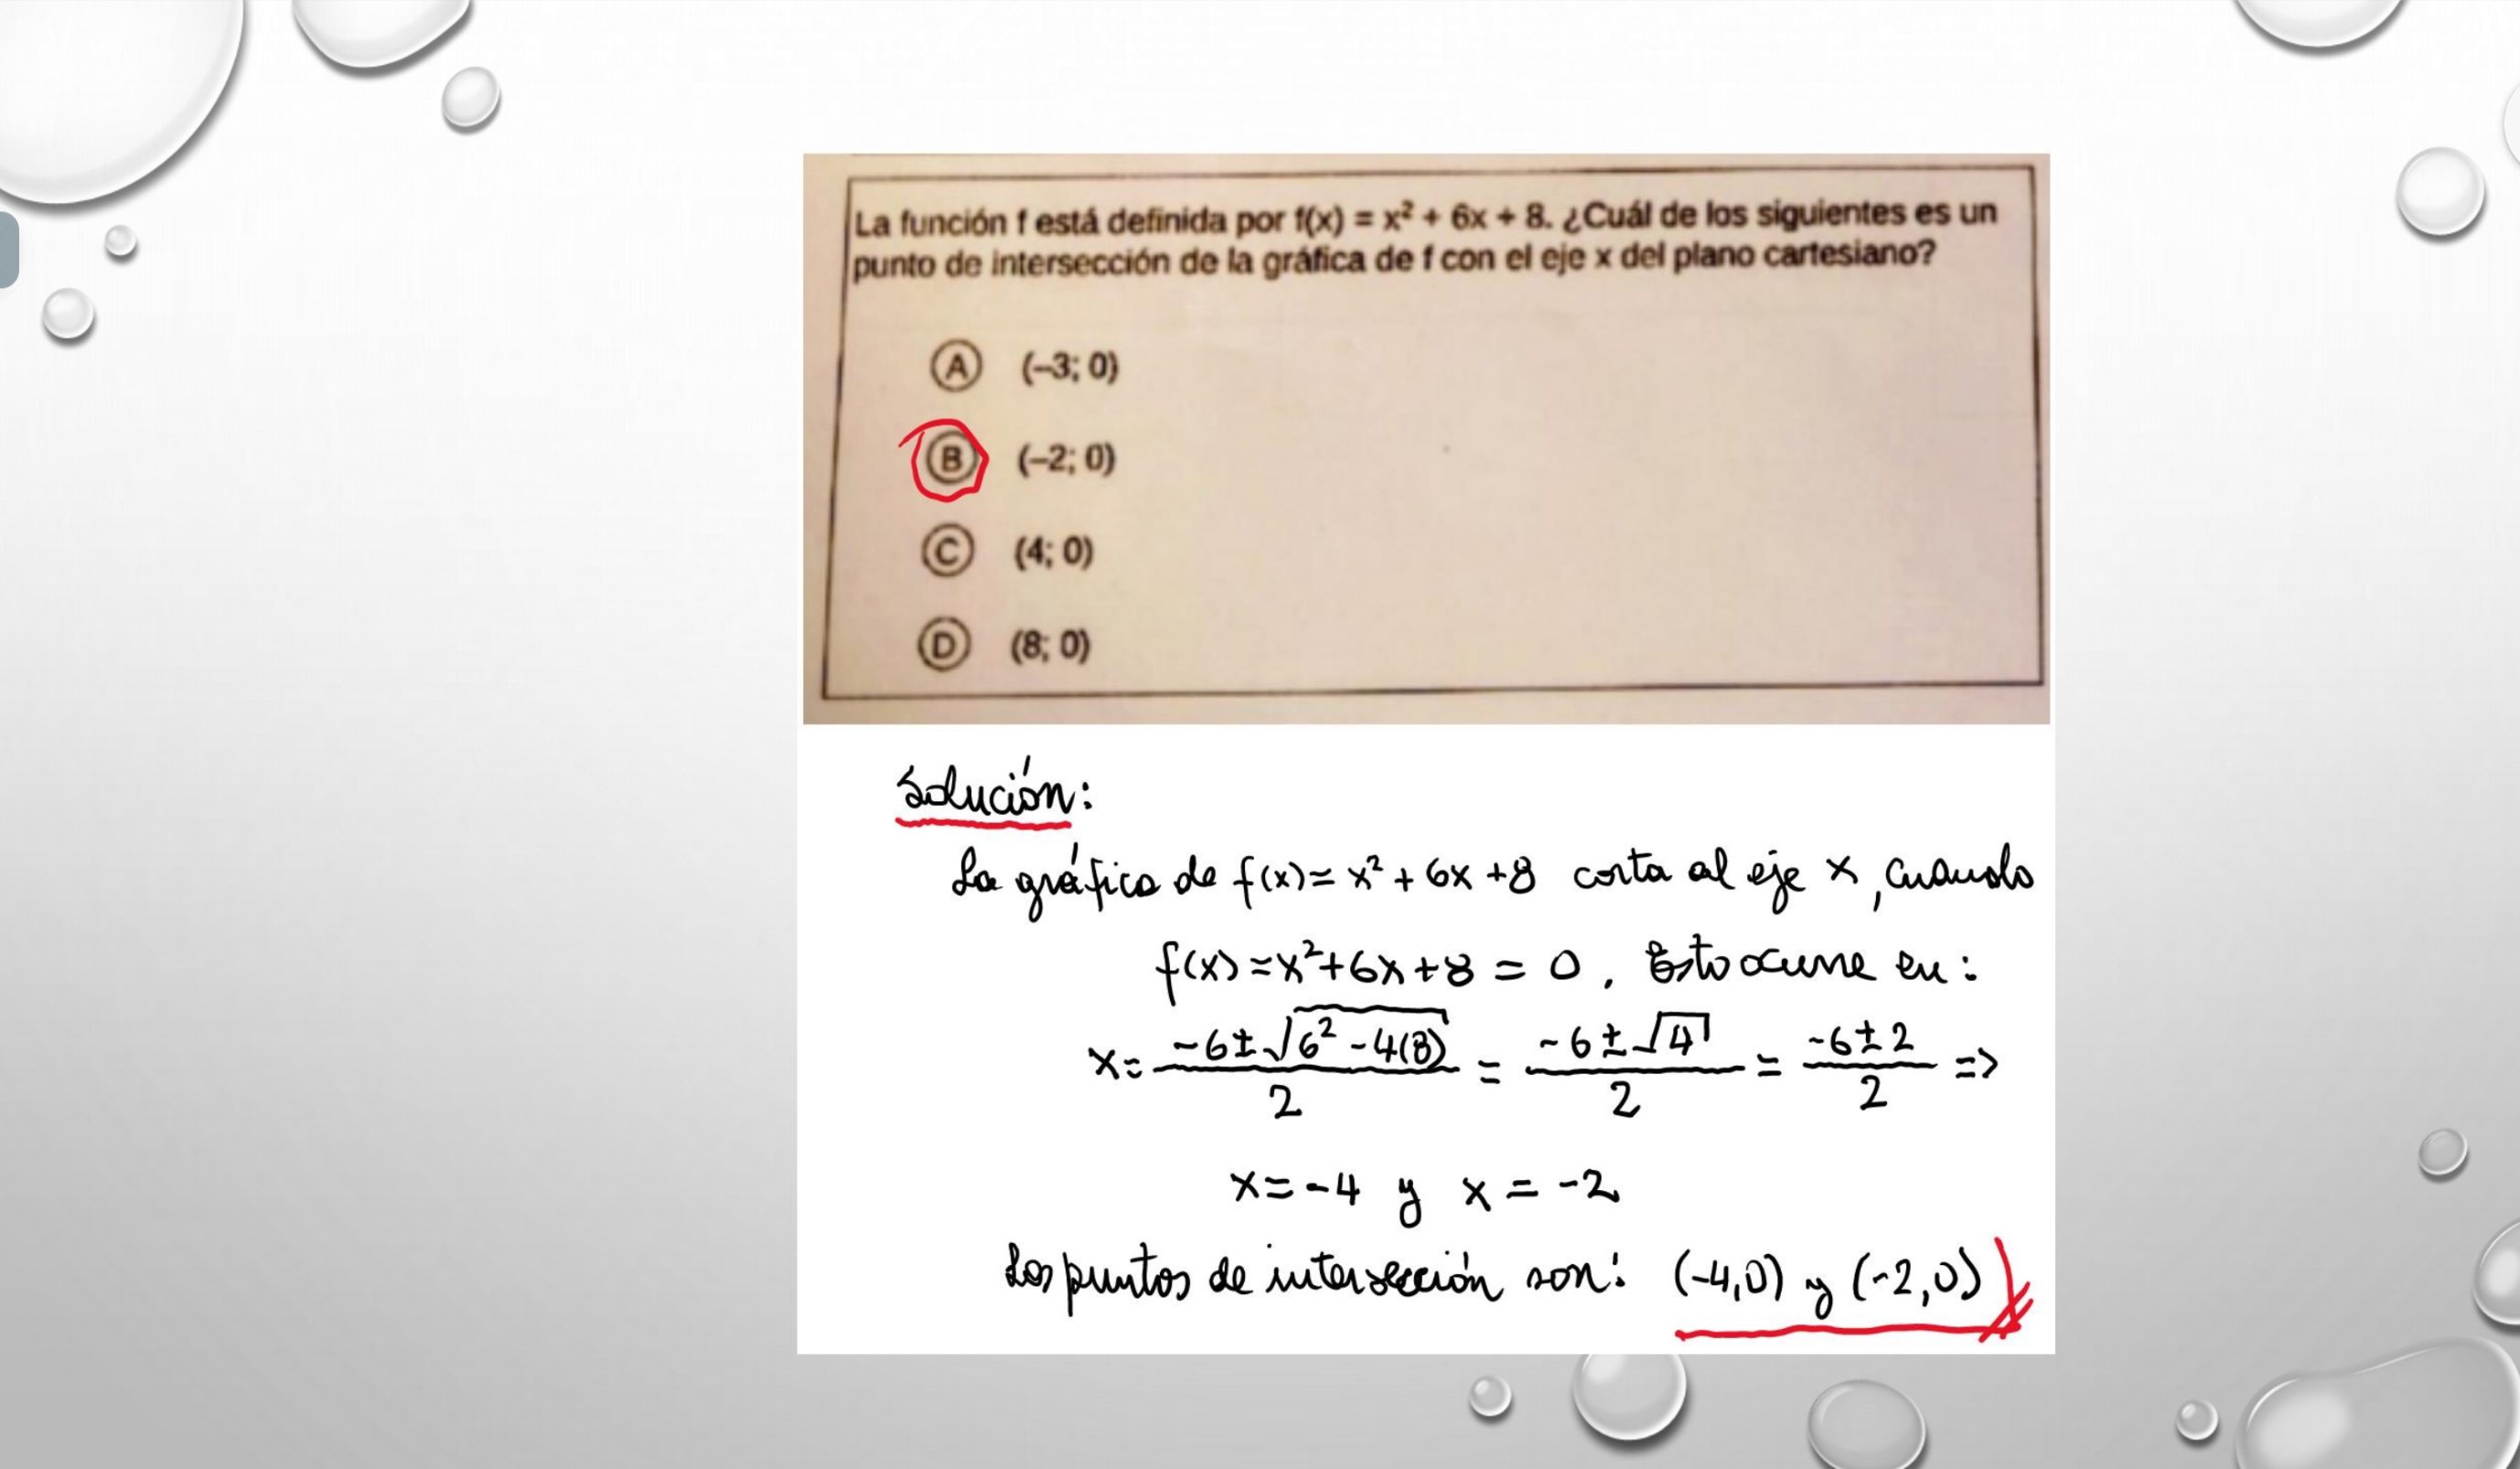 La función f está definida por f(x) = x² + 6x + 8. ¿Cuál de los siguientes es un
punto de intersección de la gráfica de f con el eje x del plano cartesiano?
A (–3; 0)
B (–2; 0)
C (4; 0)
D (8; 0)
Solución:
La gráfica de f(x) = x² + 6x + 8 corta al eje x, cuando
f(x) = x² + 6x + 8 = 0. Esto ocurre en:
x = (-6 ± √(6² - 4(8)))/2 = (-6 ± √4)/2 = (-6 ± 2)/2 =>
x = -4 y x = -2
Los puntos de intersección son: (-4,0) y (-2,0)